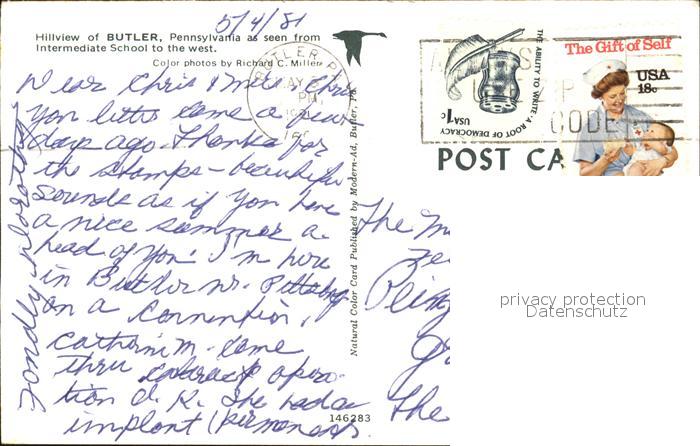 5/4/81
Hillview of BUTLER, Pennsylvania as seen from
Intermediate School to the west.
Color photos by Richard C. Miller
Dear Chris & Mrs. Chris
You letter came a few
days ago. Thanks for
the stamps - beautiful
sounds as if you have
a nice summer a-
head of you. I'm here
in Butler nr. Pittsburg
on a convention.
Catherin M. came
thru cataract opera-
tion O.K. She had a
implant (permanent).
Fondly, Dorothy
BUTLER, PA
MAY
PM
Natural Color Card Published by Modern-Ad, Butler, Pa.
146283
THE ABILITY TO WRITE · A ROOT OF DEMOCRACY
USA 1c
The Gift of Self
USA
18c
ZIP
CODE
POST CA
The
The
privacy protection
Datenschutz